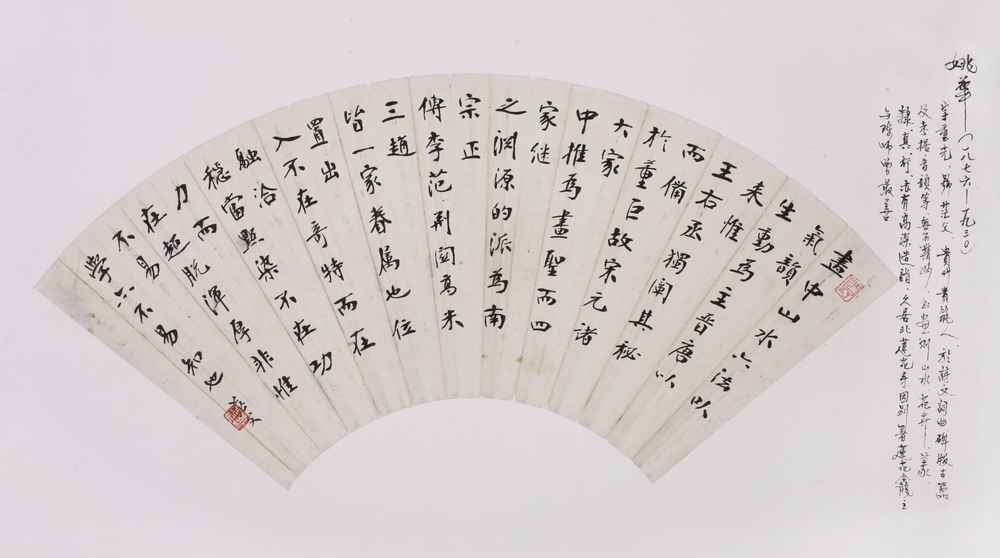 姚華（一八七六—一九三〇）
字重光 號茫父 貴州貴筑人 於詩文詞曲碑版古器
及考據音韻等無不精湛 山水 花卉 篆
隸真行 皆有高深造詣 久居北 蓮花寺因別署蓮花龕主
與陳師曾最善
畫中山水六法以
氣韻
生動為主晉唐以
來惟
王右丞獨闡其秘
而備
於董巨故宋元諸
大家
中推為畫聖而四
家継
之淵源的派為南
宗正
傳李范荊關高米
三趙
皆一家眷屬也位
置出
入不在奇特而在
融洽
穩當點染不在功
力而
在超脫渾厚非惟
不易
學亦不易知也 茫父